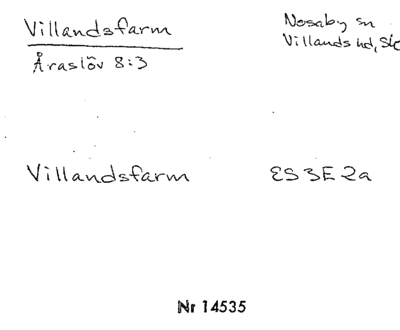 Villandsfarm
Nosaby sn
Villands hd,
Åraslöv 8:3
Villandsfarm
ES 3E 2a
Nr 14535